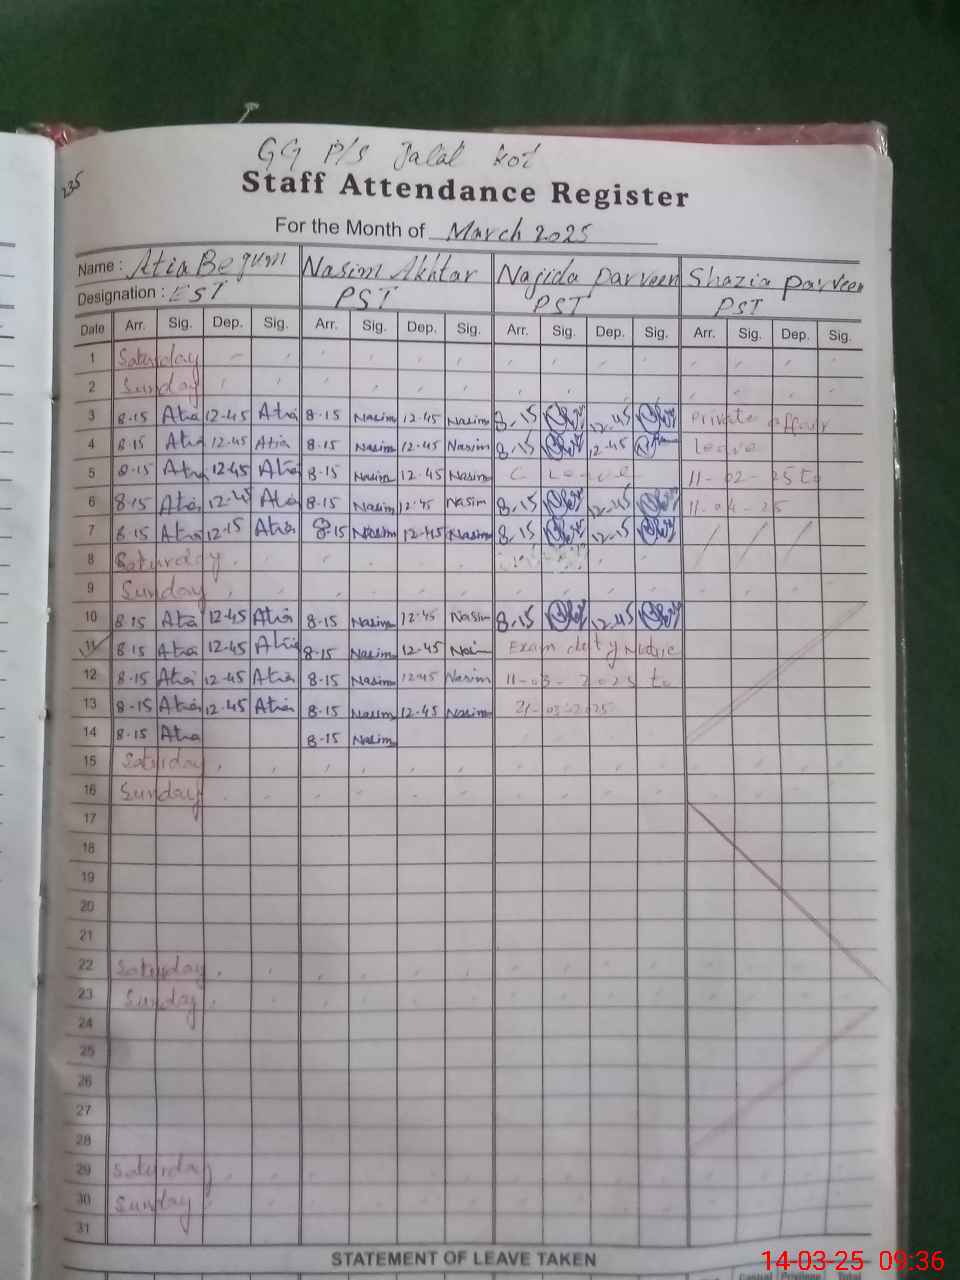 235
GG P/S Jalal kot
Staff Attendance Register
For the Month of March 2025
Name : Atia Begum Nasim Akhtar Najida Parveen Shazia Parveen
Designation : EST PST PST PST
Date Arr. Sig. Dep. Sig. Arr. Sig. Dep. Sig. Arr. Sig. Dep. Sig. Arr. Sig. Dep. Sig.
1 Saturday
2 Sunday
3 8-15 Atia 12-45 Atia 8-15 Nasim 12-45 Nasim 8-15 12-45 Private affair
4 8-15 Atia 12-45 Atia 8-15 Nasim 12-45 Nasim 8-15 12-45 leave
5 8-15 Atia 12-45 Atia 8-15 Nasim 12-45 Nasim C Leave 11-02-25 to
6 8-15 Atia 12-45 Atia 8-15 Nasim 12-45 Nasim 8-15 12-45 11-04-25
7 8-15 Atia 12-15 Atia 8-15 Nasim 12-45 Nasim 8-15 12-15
8 Saturday
9 Sunday
10 8-15 Atia 12-45 Atia 8-15 Nasim 12-45 Nasim 8-15 12-45
11 8-15 Atia 12-45 Atia 8-15 Nasim 12-45 Exam duty
12 8-15 Atia 12-45 Atia 8-15 Nasim 12-45 Nasim 11-03-2025 to
13 8-15 Atia 12-45 Atia 8-15 Nasim 12-45 Nasim 21-03-2025
14 8-15 Atia 8-15 Nasim
15 Saturday
16 Sunday
17
18
19
20
21
22 Saturday
23 Sunday
24
25
26
27
28
29 Saturday
30 Sunday
31
STATEMENT OF LEAVE TAKEN
14-03-25 09:36